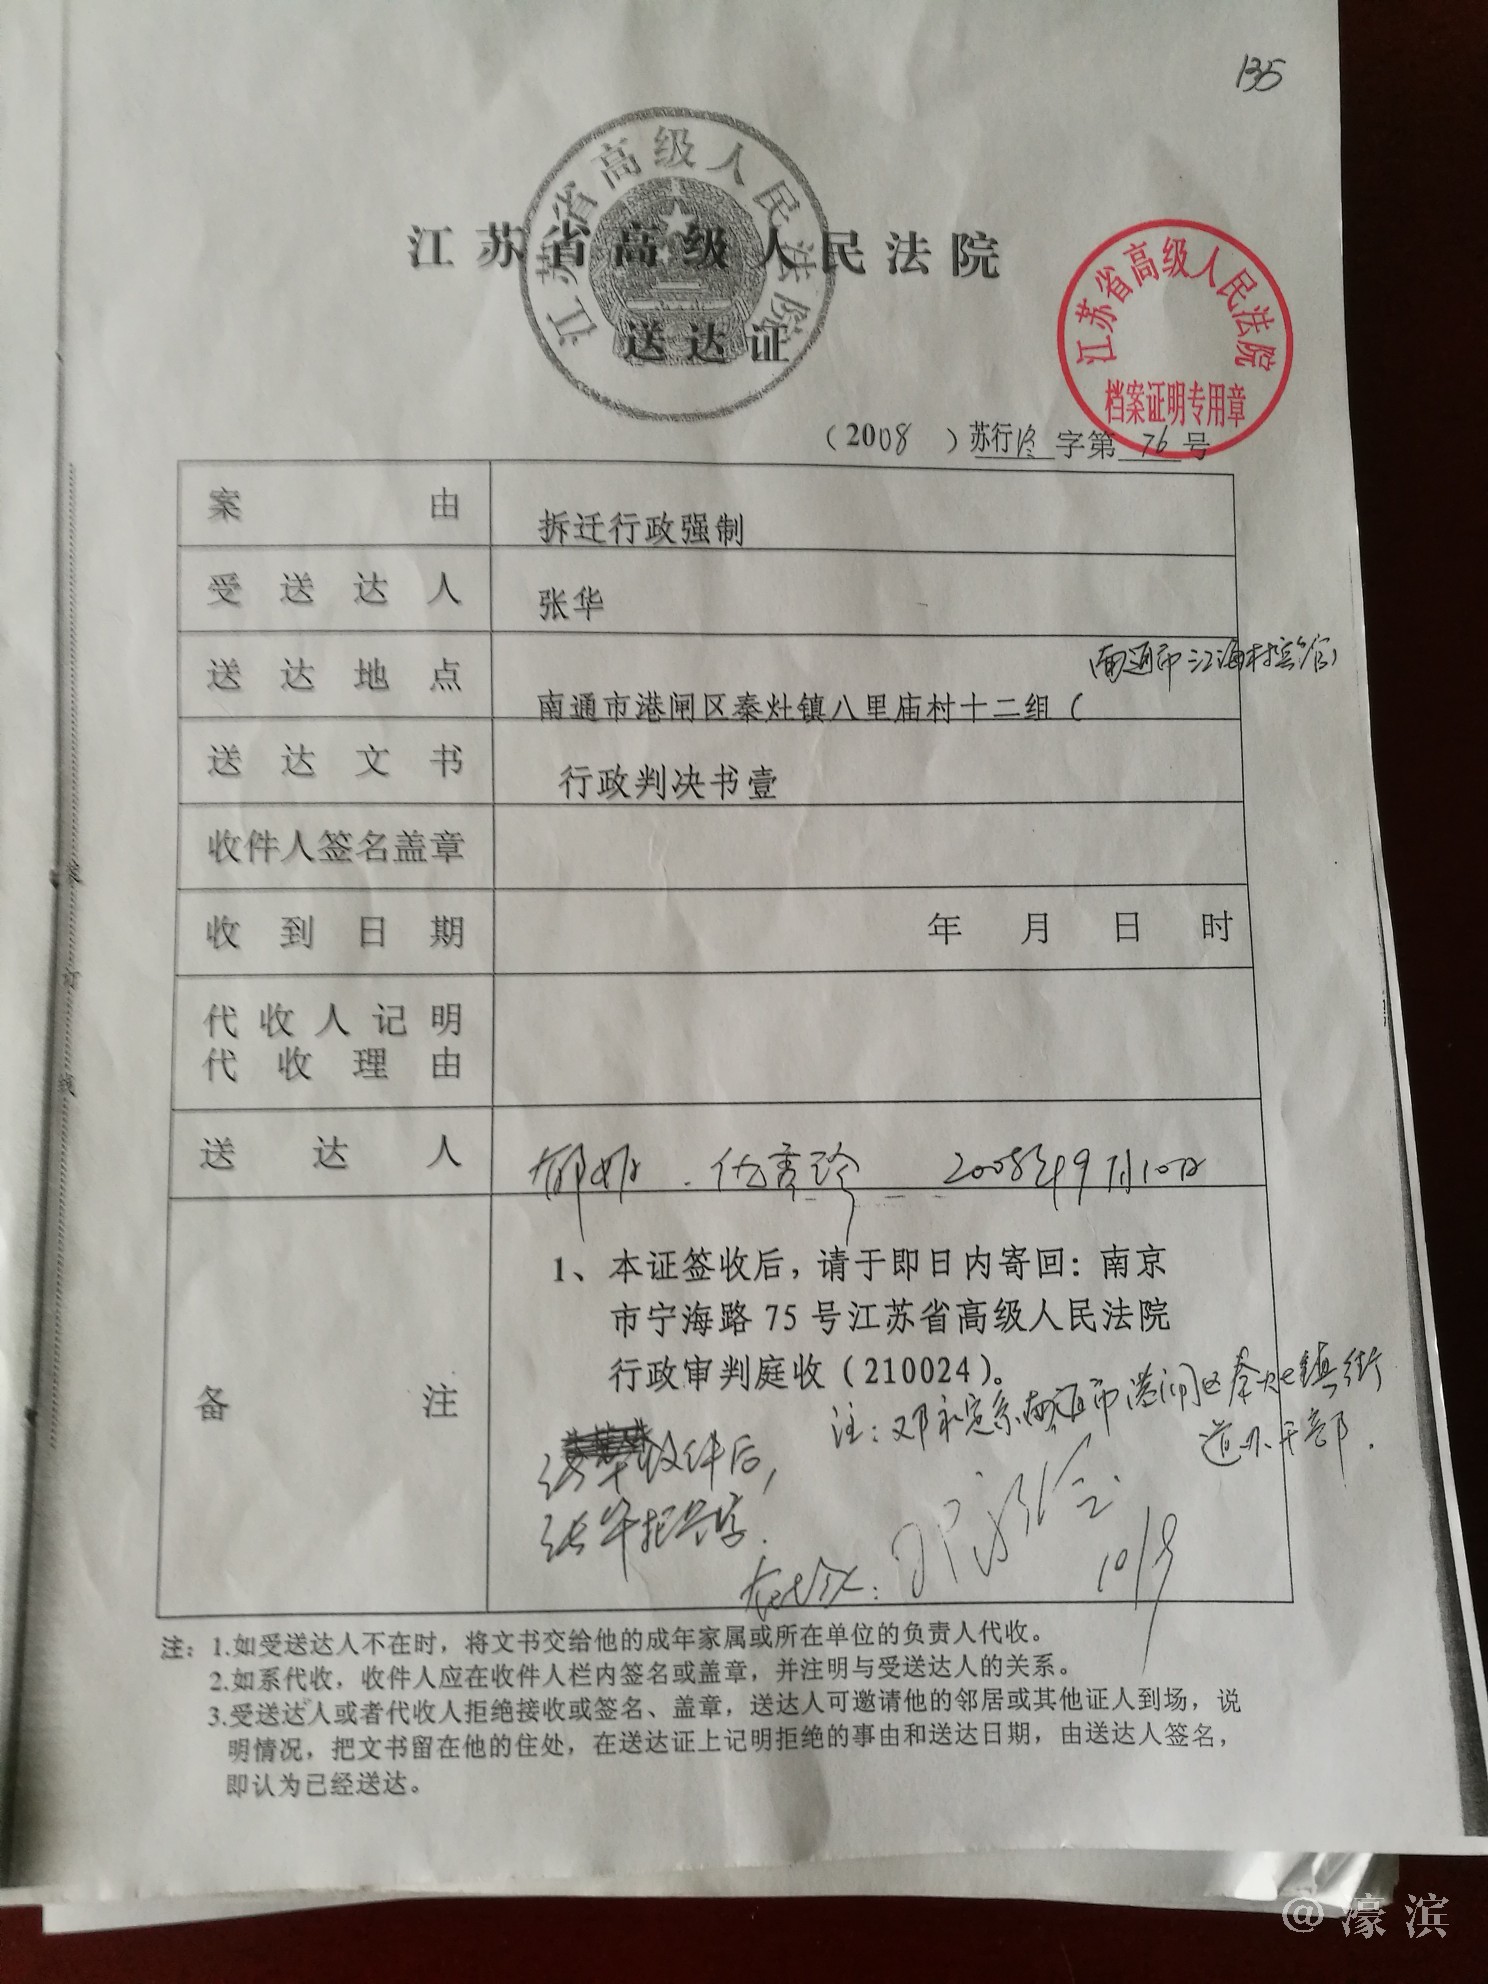 135
江苏省高级人民法院
江苏省高级人民法院
送达证
江苏省高级人民法院
档案证明专用章
（2008）苏行终字第76号
案由
拆迁行政强制
受送达人
张华
送达地点
南通市江海村宾馆
南通市港闸区秦灶镇八里庙村十二组（
送达文书
行政判决书壹
收件人签名盖章
收到日期
年 月 日 时
代收人记明
代收理由
送达人
2008年9月10日
备注
1、本证签收后，请于即日内寄回：南京
市宁海路75号江苏省高级人民法院
行政审判庭收（210024）。
注：邓永定系南通市港闸区秦灶镇街
道办干部.
收件后，
张华拒签字.
在场人：
10/9
注：1.如受送达人不在时，将文书交给他的成年家属或所在单位的负责人代收。
2.如系代收，收件人应在收件人栏内签名或盖章，并注明与受送达人的关系。
3.受送达人或者代收人拒绝接收或签名、盖章，送达人可邀请他的邻居或其他证人到场，说
明情况，把文书留在他的住处，在送达证上记明拒绝的事由和送达日期，由送达人签名，
即认为已经送达。
装订线
@濠滨